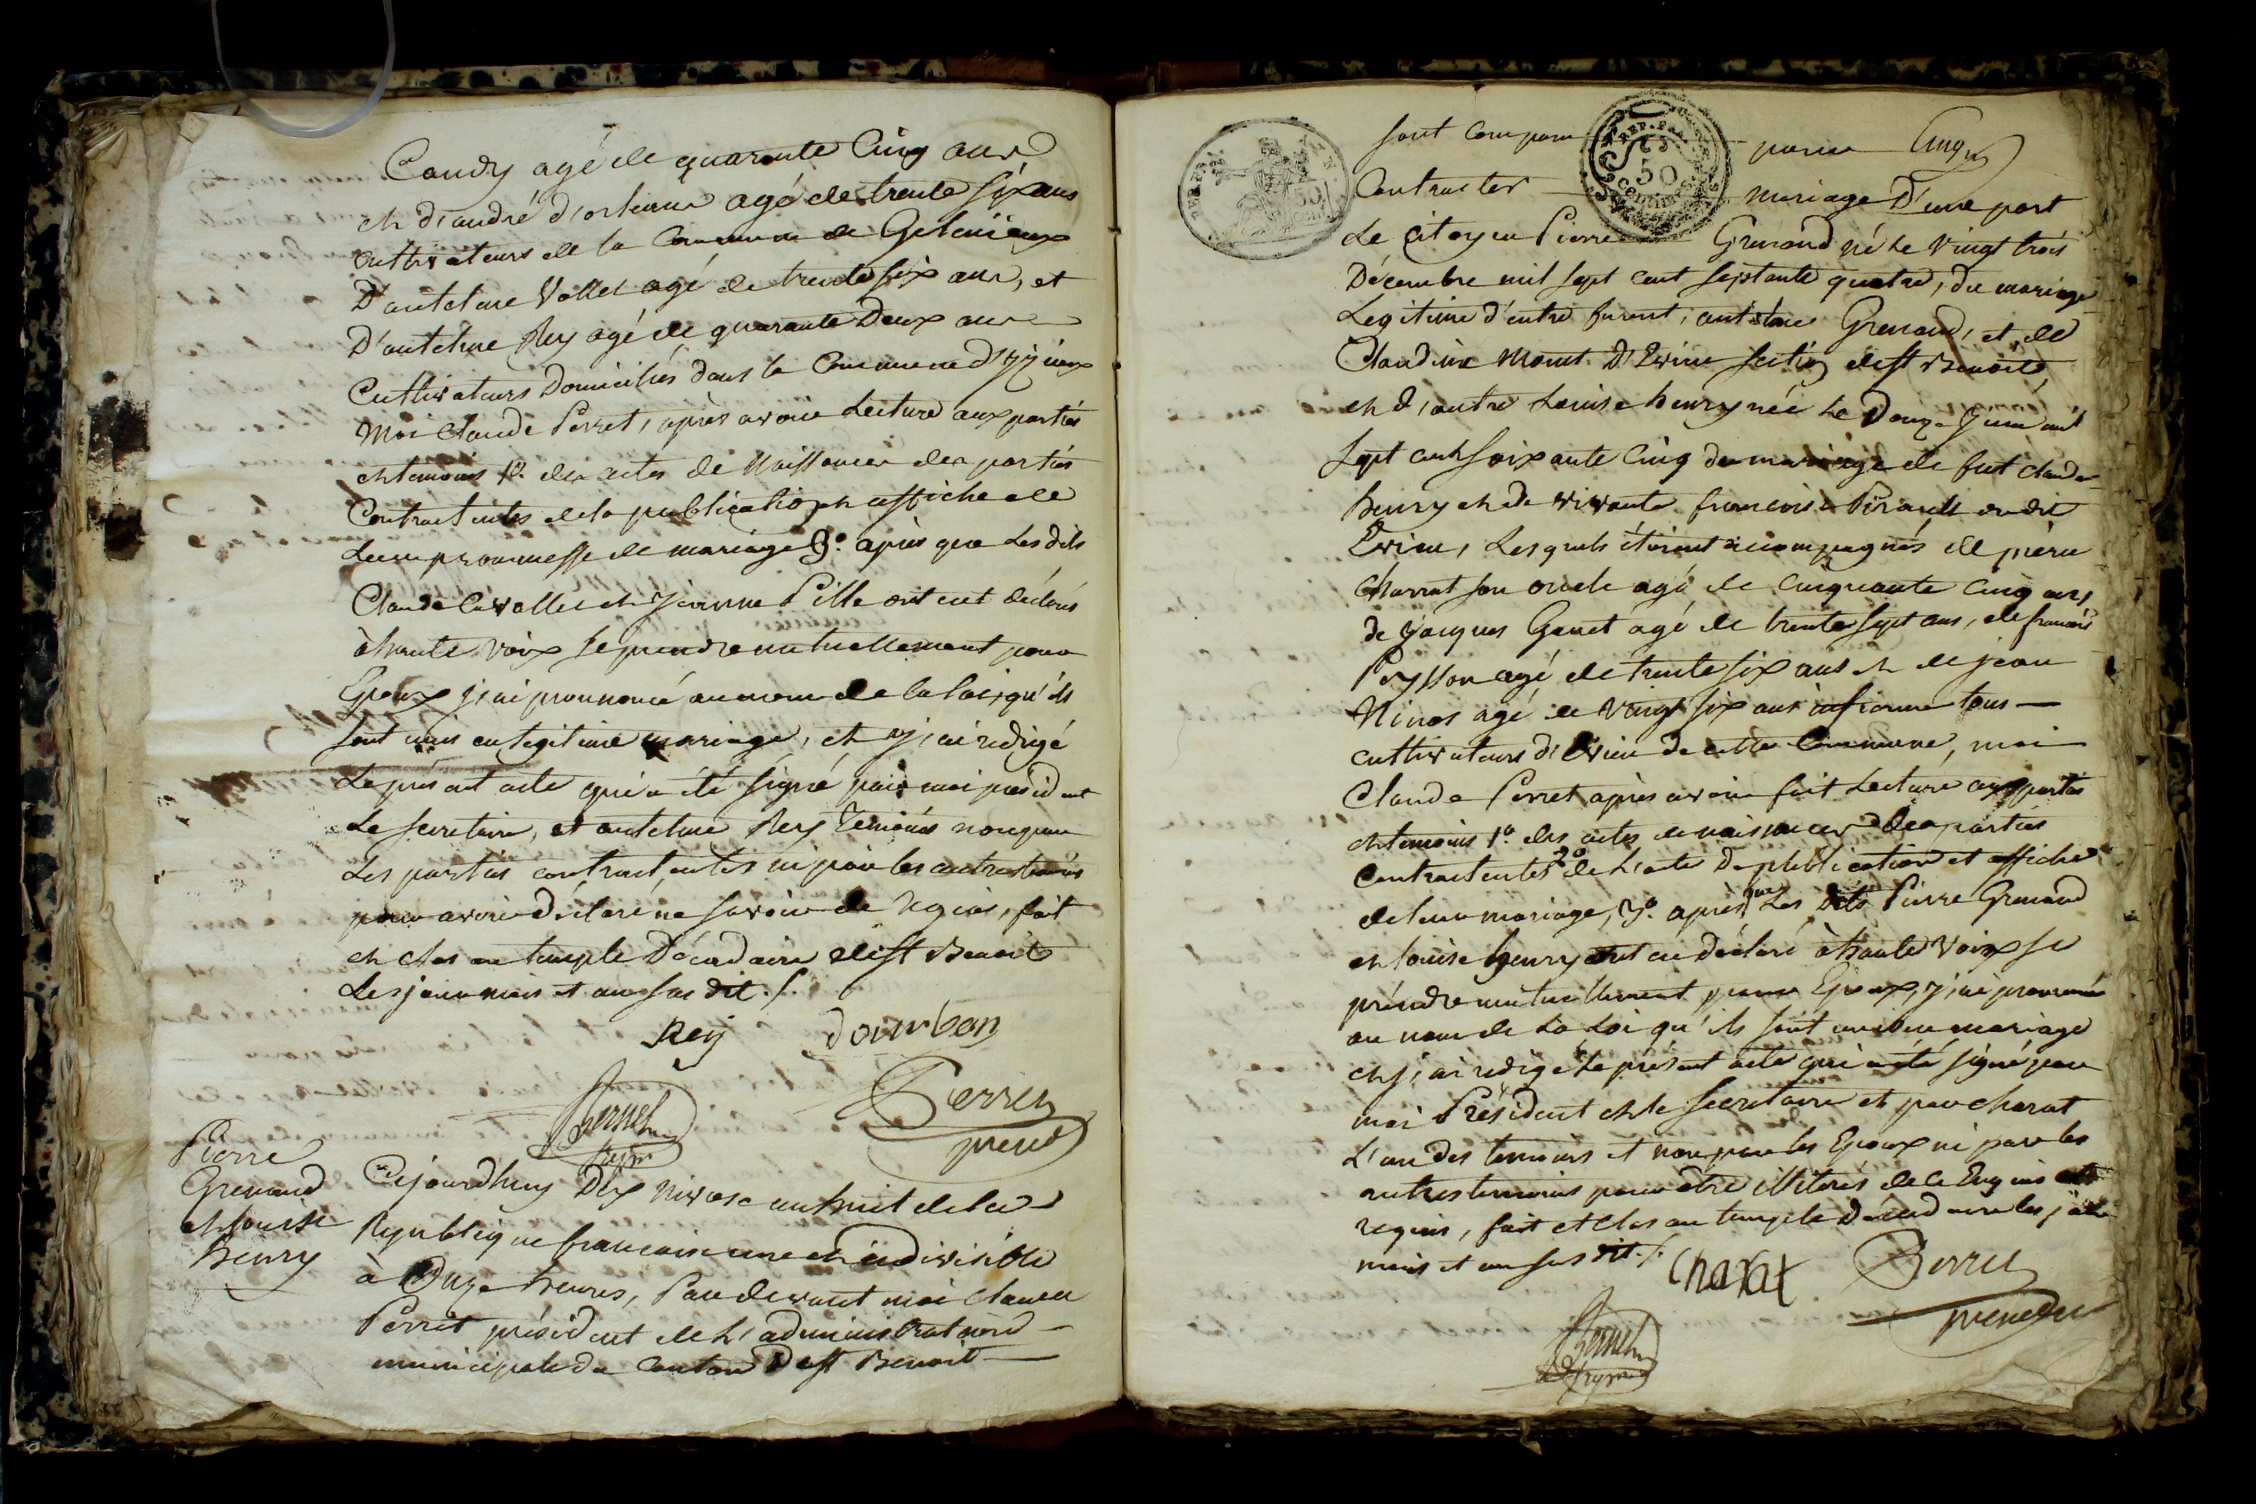 Candy agé de quarante Cinq ans
et d'andré d'orlieux agé de trente six ans
cultivateurs de la Commune de Gelinieux
D'antelme Vollet agé de trente six ans, et
D'antelme Rey agé de quarante Deux ans
Cultivateurs Domiciliés dans la Commune d'izieux
Moi Claude Perret, après avoir Lecture aux parties
et temoins 1º. des actes de Naissances des parties
Contractantes de la publication et affiche de
Leur prommesse de mariage 3º. après que Les dits
Claude Cavallet et jeanne Pille ont eut déclaré
à haute voix se prendre mutuellement pour
Epoux j'ai prononcé au nom de la loi, qu'ils
sont unis en legitime mariage, et j'ai redigé
Le présent acte qui a été signé par moi président
Le secretaire, et antelme Rey temoins non par
Les parties contractantes ni par les autres temoins
pour avoir déclaré ne savoir de requis, fait
et clos au temple Décadaire de St Benoit
Les jour mois et an sus dit ./.
Rey dourbon
Perret
presid
Pierre
Grenaud
et Louise
henry
Cejourdhuy Dix Nivose an huit de la
République francaise une et indivisible
à Onze heures, Par devant moi Claude
Perret président de L'administration
municipale du Canton De St Benoit
REP. FRA.
50
centimes
sont comparu pour
Contracter mariage D'une part
Le Citoyen Pierre Grenaud né Le Vingt trois
Décembre mil sept cent septante quatre, du mariage
Legitime d'entre furent, antelme Grenaud, et de
Claudine Monet D'Evieu section de St Benoit,
et d'autre Louise henry née Le Douze Juin mil
sept cent soixante Cinq du mariage de fut Claude
henry et de vivante francoise Pirault du dit
Evieu, Lesquels étoient accompagnés de pierre
Charrat son oncle agé de cinquante cinq ans,
de Jacques Genet agé de trente sept ans, de francois
Peysson agé de trente six ans et de jean
Ninos agé de Vingt six ans tous
cultivateurs d'Evieu de cette Commune, moi
Claude Perret après avoir fait Lecture aux parties
et temoins 1º. des actes de naissances des parties
contractantes 2º de L'acte De publication et affiche
de leur mariage, 3º. après que Les Dits Pierre Grenaud
et louise henry ont eu déclaré à haute Voix se
prendre mutuellement pour Epoux, j'ai prononcé
au nom de La Loi qu'ils sont unis en mariage
et j'ai redigé Le présent acte qui a été signé par
moi Président et le secretaire et par charat
L'un des temoins et non par les Epoux ni par les
autres temoins pour être illiterés de ce Enquis et
requis, fait et clos au temple Décadaire les jour
mois et an sus dit ./.
Charat Perret
presid